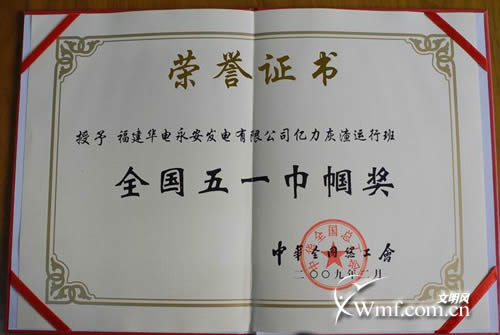 荣誉证书
授予 福建华电永安发电有限公司亿力灰渣运行班
全国五一巾帼奖
中華全国总工會
中华全国总工会
二〇〇九年二月
文明风
Wmf.com.cn